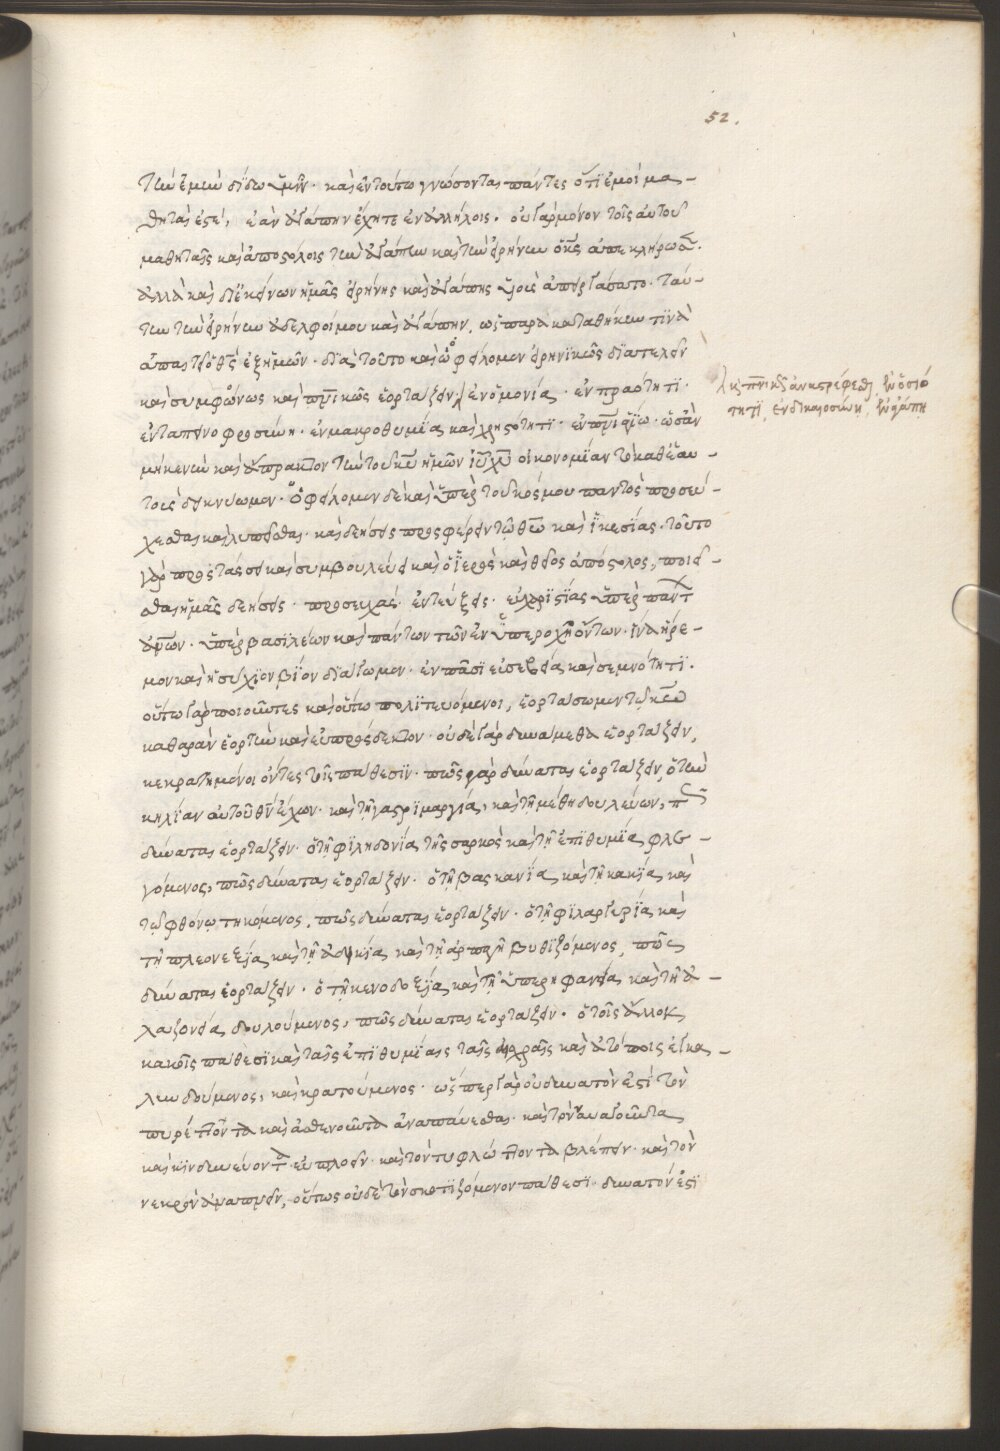 52.
τὴν ἐμὴν δίδωμι ὑμῖν· καὶ ἐν τούτω γνώσονται πάντες ὅτι ἐμοὶ μα-
θηταί ἐστε, ἐὰν ἀγάπην ἔχητε ἐν ἀλλήλοις. οὐ γὰρ μόνον τοῖς αὐτοῦ
μαθηταῖς καὶ ἀποστόλοις τὴν ἀγάπην καὶ τὴν εἰρήνην ἀπεκλήρωσε.
ἀλλὰ καὶ δι' ἐκείνων ἡμᾶς εἰρήνης καὶ ἀγάπης υἱοὺς ἀπειργάσατο. ταύ-
την τὴν εἰρήνην ἀδελφοί μου καὶ ἀγάπην, ὥσπερ παρακαταθήκην τινὰ
ἀπαιτεῖ ὁ θς ἐξ ἡμῶν· διὰ τοῦτο καὶ ὀφείλομεν εἰρηνικῶς διατελεῖν
καὶ συμφώνως καὶ πνικῶς ἑορτάζειν, ἐν ὁμονία· ἐν πραότητι·
καὶ πνικῶς ἀναστρέφεσθαι, ἐν ὁσιό
τητι, ἐν δικαιοσύνη, ἐν ἀγάπη
ἐν ταπεινοφροσύνη· ἐν μακροθυμία καὶ χρηστότητι· ἐν πνι ἁγίω· ὡς ἂν
μὴ κενὴν καὶ ἄπρακτον τὴν τοῦ κυ ἡμῶν ιυ χυ οἰκονομίαν τὸ καθ' ἑαυ-
τοὺς δεικνύωμεν. ὀφείλομεν δὲ καὶ ὑπὲρ τοῦ κόσμου παντὸς προσεύ-
χεσθαι καὶ λυπεῖσθαι· καὶ δεήσεις προσφέρειν τῶ θεῶ καὶ ἱκεσίας. τοῦτο
γὰρ προστάσσει καὶ συμβουλεύει καὶ ὁ ἱερὸς καὶ θεῖος ἀπόστολος, ποιεῖ-
σθαι ἡμᾶς δεήσεις· προσευχὰς· ἐντεύξεις· εὐχαριστίας ὑπὲρ πάντων
ἀνων· ὑπὲρ βασιλέων καὶ πάντων τῶν ἐν ὑπεροχῇ ὄντων. ἵνα ἤρε-
μον καὶ ἡσύχιον βίον διάγωμεν· ἐν πάσι εὐσεβεία καὶ σεμνότητι.
οὕτω γὰρ ποιοῦντες καὶ οὕτω πολιτευόμενοι, ἑορτάσωμεν τῶ κω
καθαρὰν ἑορτὴν καὶ εὐπρόσδεκτον· οὐδὲ γὰρ δυνάμεθα ἑορτάζειν,
κεκρατημένοι ὄντες τοῖς πάθεσιν· πῶς γὰρ δύναται ἑορτάζειν, ὁ τὴν
κηλίαν αὐτοῦ θν ἔχων· καὶ τῆ γαστριμαργία, καὶ τῆ μέθη δουλεύων, πῶς
δύναται ἑορτάζειν· ὁ τῆ φιληδονία τῆς σαρκὸς καὶ τῆ ἐπιθυμία φλε-
γόμενος, πῶς δύναται ἑορτάζειν· ὁ τῆ βασκανία, καὶ τῆ κακία, καὶ
τῶ φθόνω τηκόμενος, πῶς δύναται ἑορτάζειν· ὁ τῆ φιλαργυρία καὶ
τῆ πλεονεξία, καὶ τῆ ἀδικία καὶ τῆ ἁρπαγῆ βυθιζόμενος, πῶς
δύναται ἑορτάζειν· ὁ τῆ κενοδοξία, καὶ τῆ ὑπερηφανεία, καὶ τῆ ἀ-
λαζονεία δουλούμενος, πῶς δύναται ἑορτάζειν. ὁ τοῖς ἄλλοις
κακοῖς πάθεσι καὶ ταῖς ἐπιθυμίαις ταῖς αἰσχραῖς καὶ ἀτόποις ἐγκα-
λινδούμενος, καὶ κρατούμενος· ὥσπερ γὰρ οὐ δυνατόν ἐστι τὸν
πυρέττοντα καὶ ἀσθενοῦντα ἀναπαύεσθαι· καὶ τὸν ναυαγοῦντα
καὶ κινδυνεύοντα εὐπλοεῖν· καὶ τὸν τυφλώττοντα βλέπειν· καὶ τὸν
νεκρὸν ἀναπνεῖν, οὕτως οὐδὲ τὸν σκοτιζόμενον πάθεσι· δυνατόν ἐστι